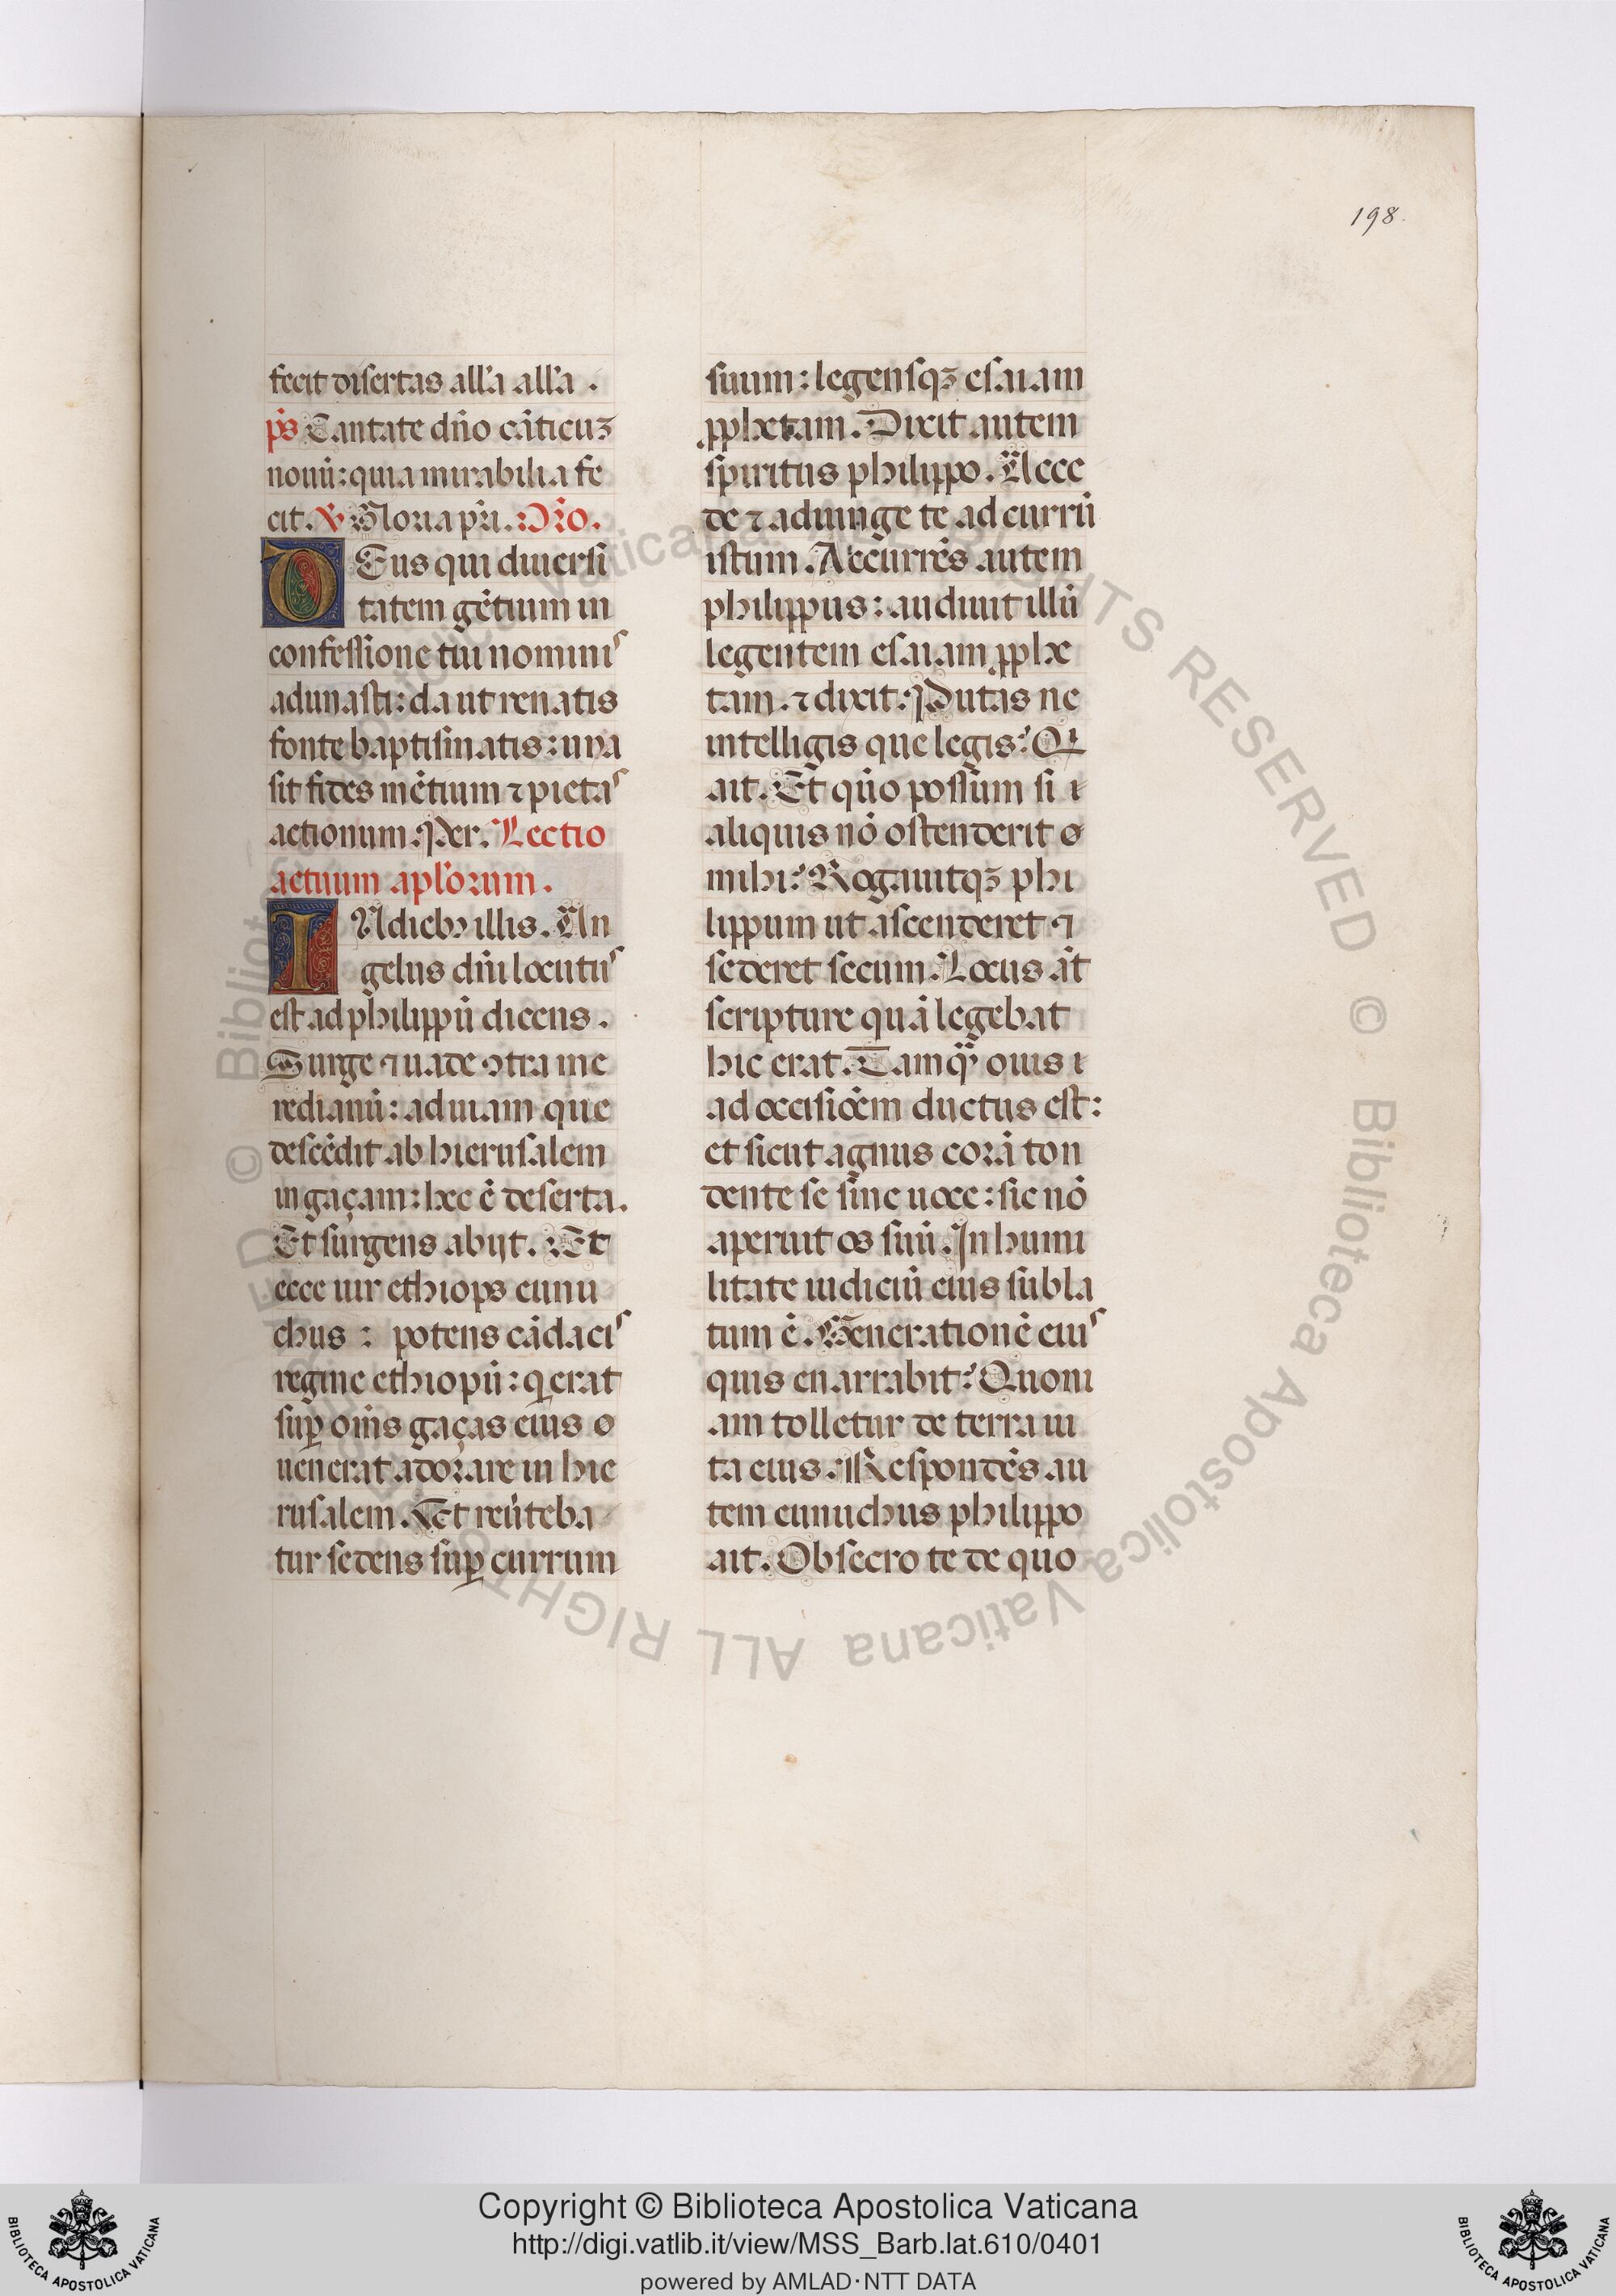 198.
fecit disertas alľa alľa .
p̄s Cantate dn̄o cāticuꝫ
nouū: quia mirabilia fe
cit. ℣ Gloria pr̄i. Or̄o.
DEus qui diuersi
tatem gētium in
confessione tui nominis
adunasti: da ut renatis
fonte baptismatis: una
sit fides mētium ⁊ pietas
actionum. Per. Lectio
actuum apľorum.
IN dieb; illis. An
gelus dn̄i locutus
est ad philippū dicens.
Surge ⁊ uade ꝯtra me
redianū: ad uiam que
descēdit ab hierusalem
in gaçam: hec ē deserta.
Et surgens abijt. Et
ecce uir ethiops eunu
chus : potens cādacis
regine ethiopū: q̄ erat
suꝑ om̄s gaças eius ø
uenerat adorare in hie
rusalem. Et reūteba
tur sedens suꝑ currum
suum: legensqꝫ esaiam
ꝓphetam. Dixit autem
spiritus philippo. Acce
de ⁊ adiunge te ad currū
istum. Accurrēs autem
philippus: audiuit illū
legentem esaiam ꝓphe
tam. ⁊ dixit. Putas ne
intelligis que legis? Qi
ait. Et qūo possum si ı
aliquis nō ostenderit ø
mihi? Rogauitqꝫ phi
lippum ut ascenderet ⁊
sederet secum. Locus āt
scripture quā legebat
hic erat. Tamqͣ ouis ı
ad occisiōem ductus est:
et sicut agnus corā ton
dente se sine uoce: sic nō
aperuit os suū. In humi
litate iudiciū eius subla
tum ē. Generationē eius
quis enarrabit? Quoni
am tolletur de terra ui
ta eius. Respondēs au
tem eunuchus philippo
ait. Obsecro te de quo
© Biblioteca Apostolica Vaticana ALL RIGHTS RESERVED © Biblioteca Apostolica Vaticana ALL RIGHTS RESERVED
Copyright © Biblioteca Apostolica Vaticana
http://digi.vatlib.it/view/MSS_Barb.lat.610/0401
powered by AMLAD·NTT DATA
BIBLIOTECA APOSTOLICA VATICANA
BIBLIOTECA APOSTOLICA VATICANA